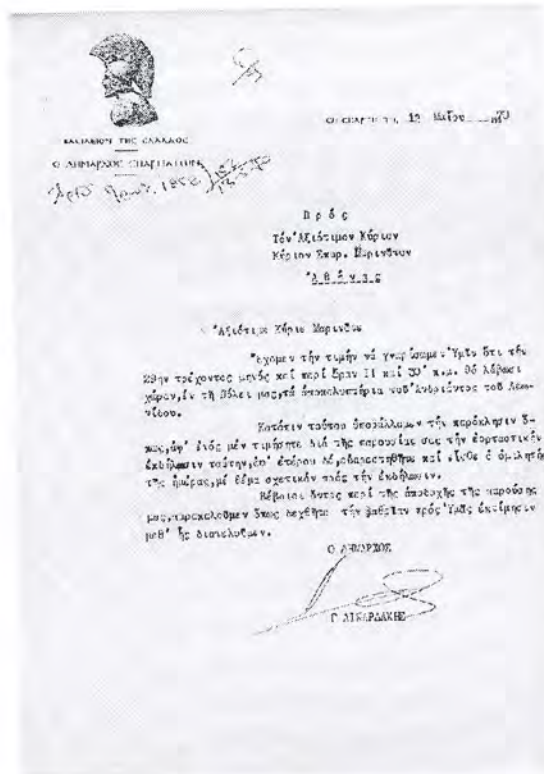 ΒΑΣΙΛΕΙΟΝ ΤΗΣ ΕΛΛΑΔΟΣ
Ο ΔΗΜΑΡΧΟΣ ΣΠΑΡΤΙΑΤΩΝ
12 Μαΐου
Πρός
Τόν Ἀξιότιμον Κύριον
Κύριον Σπυρ. Μαρινᾶτον
Ἀθήνας
Ἀξιότιμε Κύριε Μαρινᾶτε
Ἔχομεν τήν τιμήν νά γνωρίσωμεν Ὑμῖν ὅτι τήν
29ην τρέχοντος μηνός καί περί ὥραν 11 καί 30' π.μ. θά λάβωσι
χώραν, ἐν τῇ πόλει μας, τά ἀποκαλυπτήρια τοῦ Ἀνδριάντος τοῦ Λεω-
νίδου.
Κατόπιν τούτου ὑποβάλλομεν τήν παράκλησιν ὅ-
πως, ἀφ' ἑνός μέν τιμήσητε διά τῆς παρουσίας σας τήν ἑορταστικήν
ἐκδήλωσιν ταύτην, ἀφ' ἑτέρου δέ, εὐαρεστηθῆτε καί εἶσθε ὁ ὁμιλητής
τῆς ἡμέρας, μέ θέμα σχετικόν πρός τήν ἐκδήλωσιν.
Βέβαιοι ὄντες περί τῆς ἀποδοχῆς τῆς παρούσης
μας, παρακαλοῦμεν ὅπως δεχθῆτε τήν βαθεῖαν πρός Ὑμᾶς ἐκτίμησιν
μεθ' ἧς διατελοῦμεν.
Ο ΔΗΜΑΡΧΟΣ
Γ ΔΙΚΑΡΔΑΚΗΣ